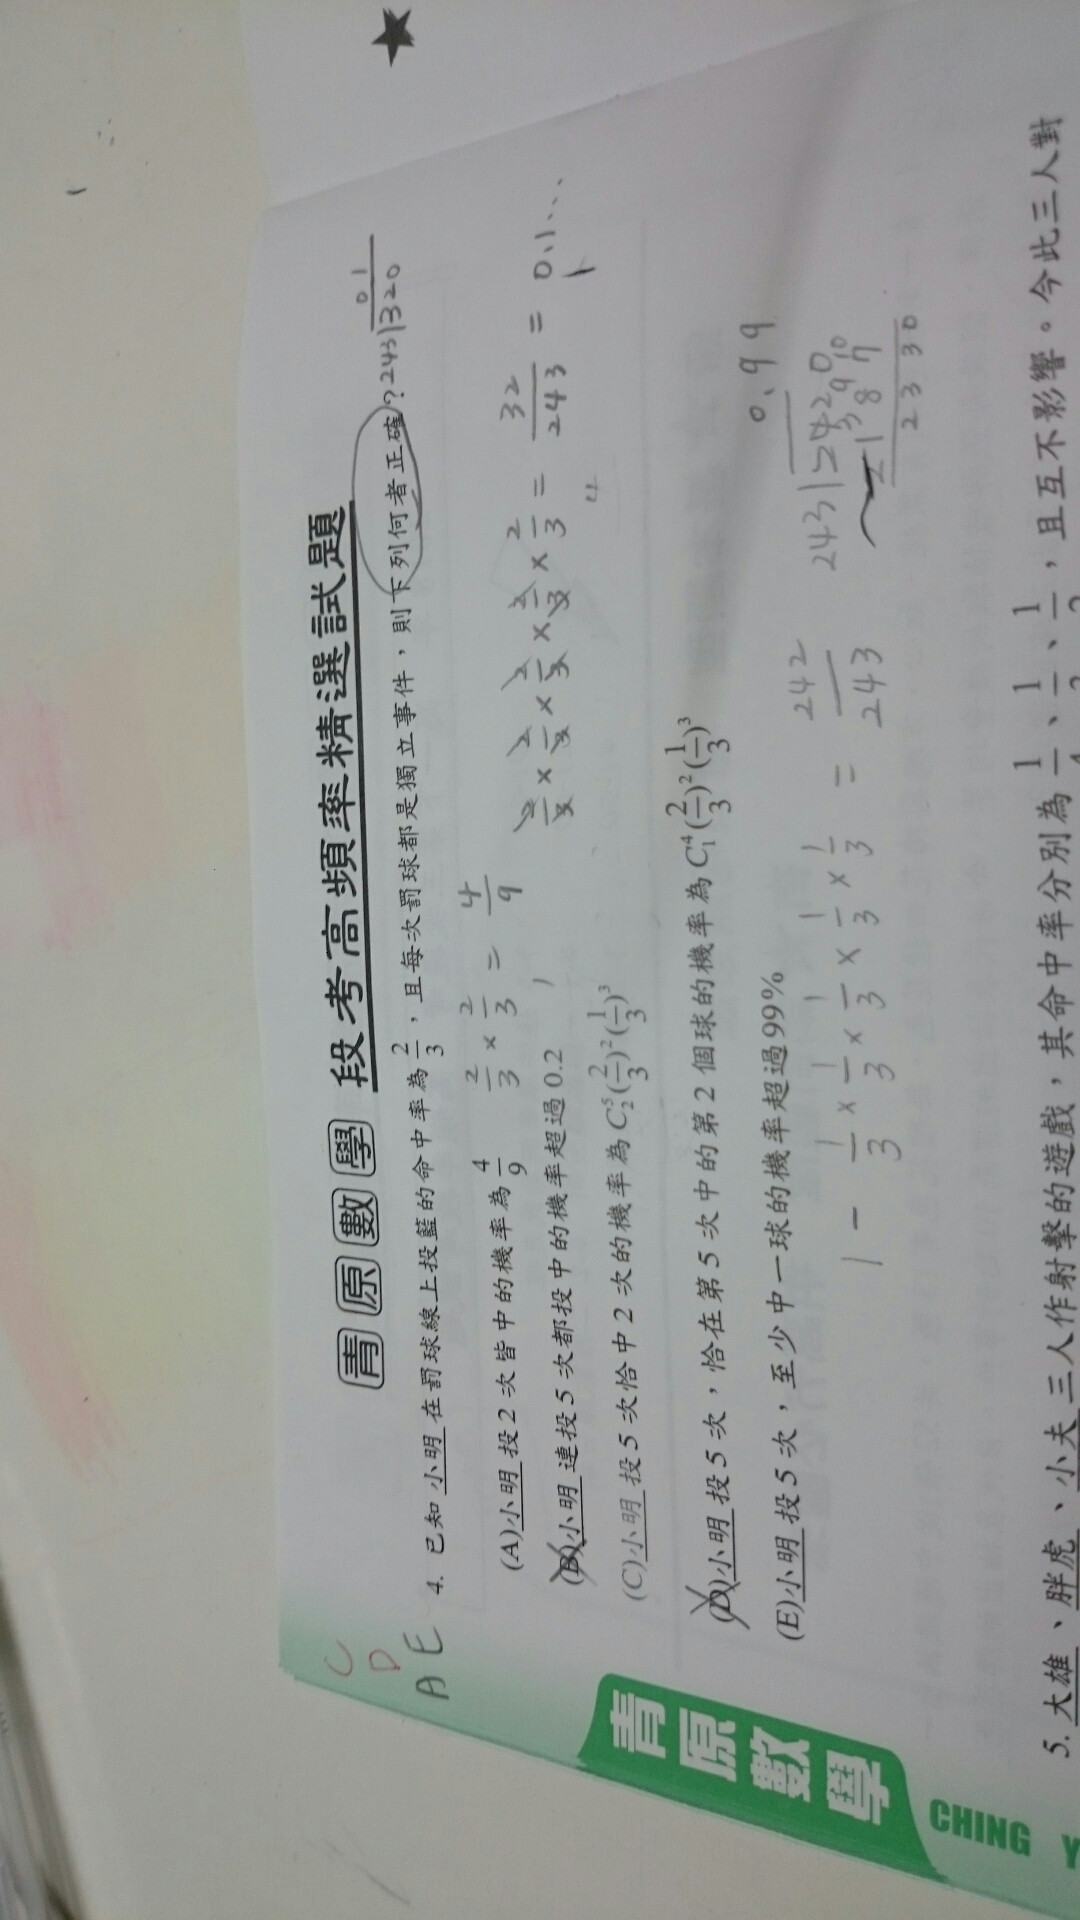 青原數學 段考高頻率精選試題
C
D
A E
4. 已知小明在罰球線上投籃的命中率為2/3，且每次罰球都是獨立事件，則下列何者正確？
01
243)320
(A)小明投2次皆中的機率為4/9
2/3 × 2/3 = 4/9
(B)小明連投5次都投中的機率超過0.2
2/3 × 2/3 × 2/3 × 2/3 × 2/3 = 32/243 = 0.1...
(C)小明投5次恰中2次的機率為C⁵₂(2/3)²(1/3)³
(D)小明投5次，恰在第5次中的第2個球的機率為C⁴₁(2/3)²(1/3)³
(E)小明投5次，至少中一球的機率超過99%
1 - 1/3 × 1/3 × 1/3 × 1/3 × 1/3 = 242/243
0.99
243)2420
2187
2330
青原數學
CHING Y
5. 大雄、胖虎、小夫三人作射擊的遊戲，其命中率分別為1/4、1/3、1/2，且互不影響。今此三人對